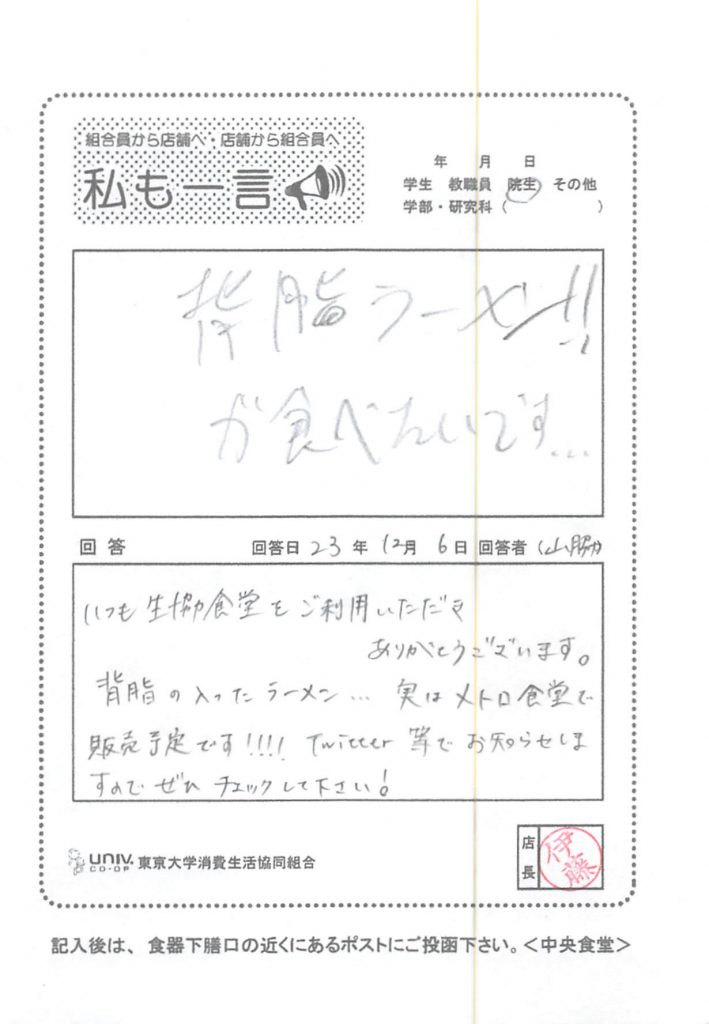 組合員から店舗へ・店舗から組合員へ
私も一言
年 月 日
学生 教職員 院生 その他
学部・研究科( )
背脂ラーメン!!
が食べたいです...
回答 回答日 23年 12月 6日 回答者 (山脇)
いつも生協食堂をご利用いただき
ありがとうございます。
背脂の入ったラーメン... 実はメトロ食堂で
販売予定です!!!! Twitter 等でお知らせしま
すのでぜひ チェックして下さい!
UNIV. CO-OP 東京大学消費生活協同組合
店長 伊藤
記入後は、食器下膳口の近くにあるポストにご投函下さい。<中央食堂>